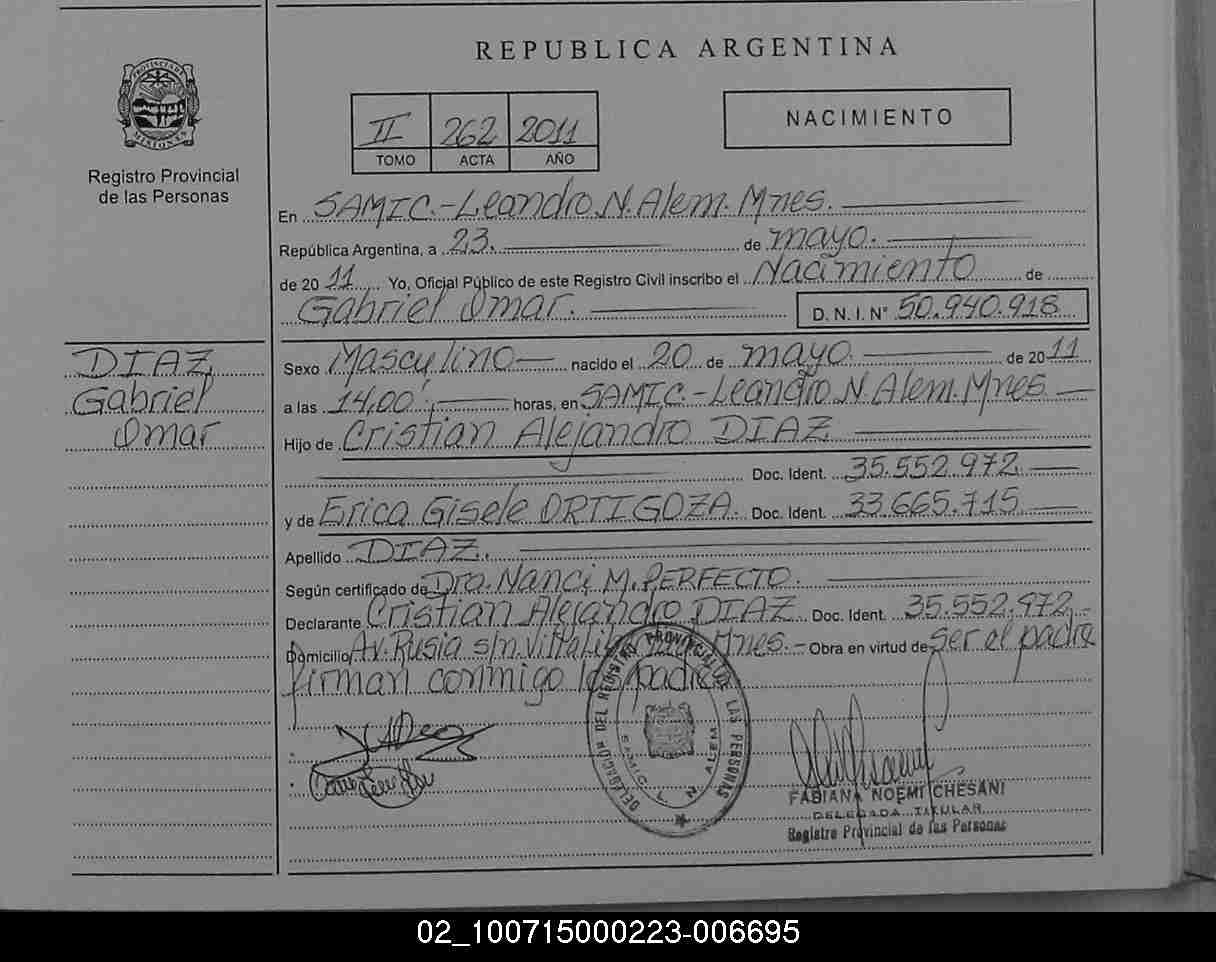 REPUBLICA ARGENTINA
PROVINCIA DE MISIONES
Registro Provincial
de las Personas
II 262 2011
TOMO ACTA AÑO
NACIMIENTO
En SAMIC.-Leandro N. Alem. Mnes.
República Argentina, a 23. de mayo.
de 2011 Yo, Oficial Público de este Registro Civil inscribo el Nacimiento de
Gabriel Omar. D. N. I. N° 50.940.918
DIAZ,
Gabriel
Omar
Sexo Masculino nacido el 20 de mayo. de 2011
a las 14,00 horas, en SAMIC.-Leandro N. Alem. Mnes.
Hijo de Cristian Alejandro DIAZ
Doc. Ident. 35.552.972
y de Erica Gisele ORTIGOZA. Doc. Ident. 33.665.715
Apellido DIAZ.
Según certificado de Dra. Nanci M. PERFECTO.
Declarante Cristian Alejandro DIAZ Doc. Ident. 35.552.972.-
Domicilio Av. Rusia s/n. Villa Mnes.- Obra en virtud de ser el padre
firman conmigo los padres
DELEGACION DEL REGISTRO PROVINCIAL DE LAS PERSONAS
SAMIC L. N. ALEM
FABIANA NOEMI CHESANI
DELEGADA TITULAR
Registro Provincial de las Personas
02_100715000223-006695